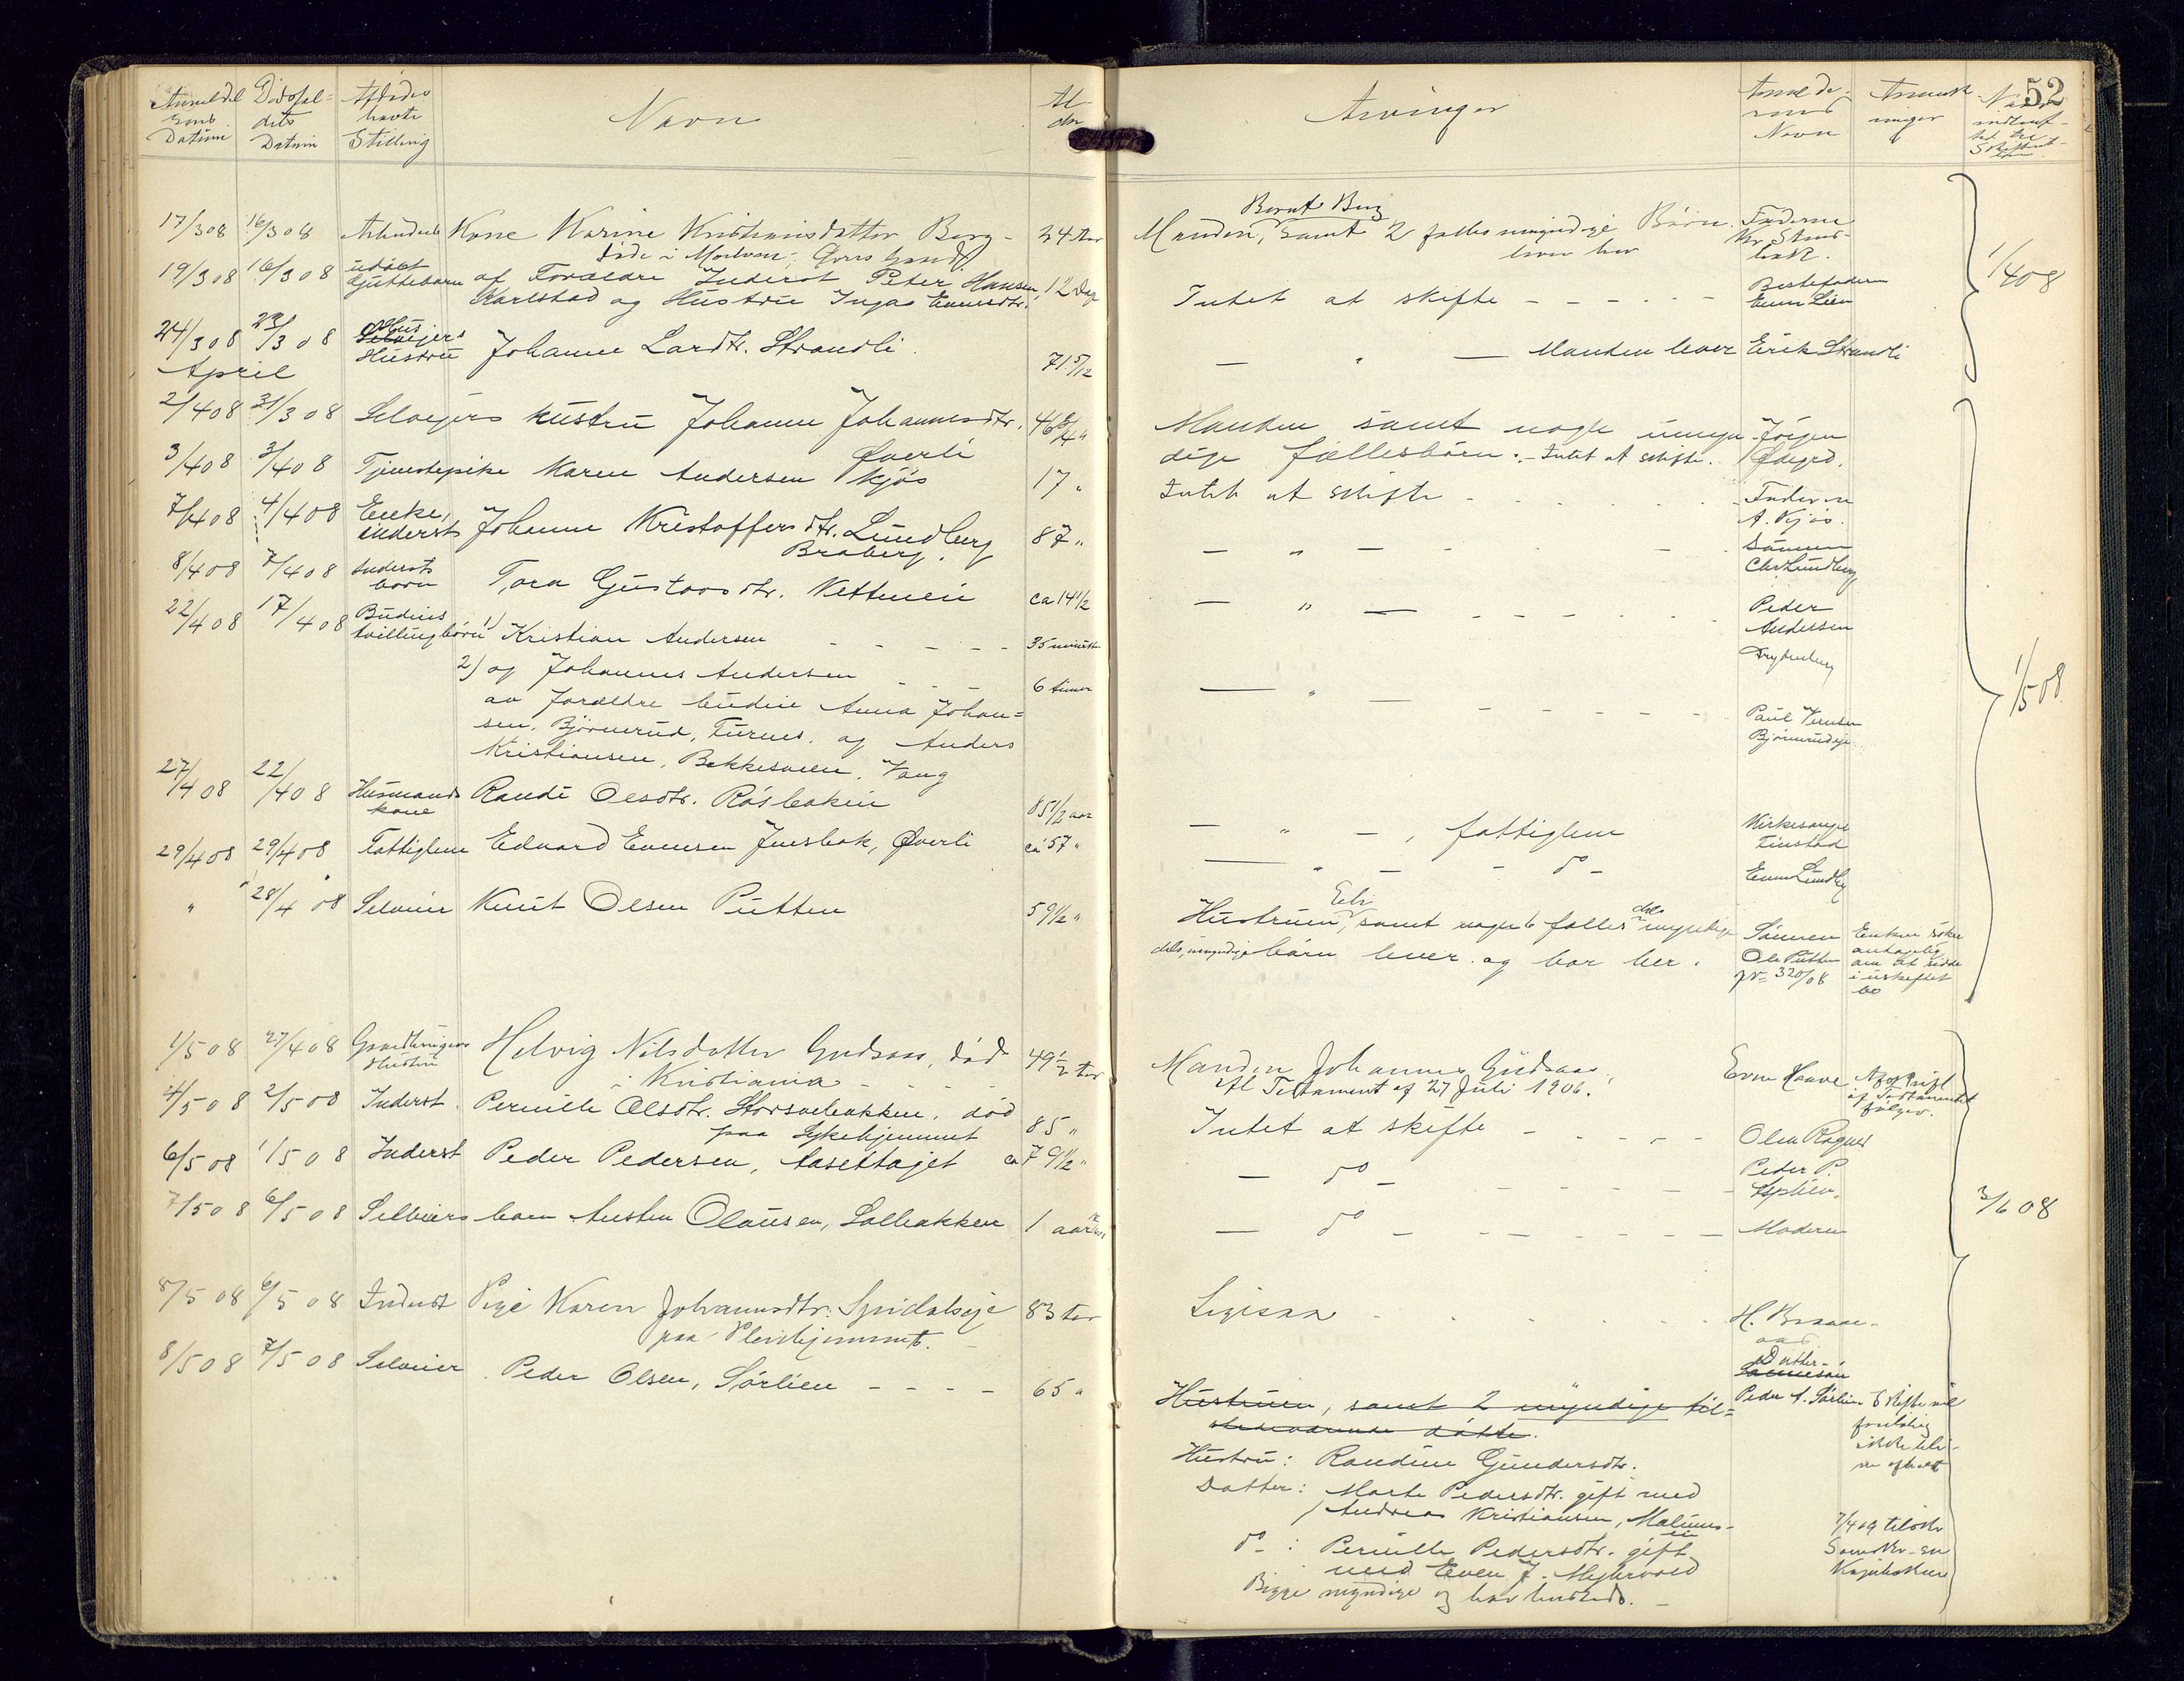 52
Anmeldel
sens
Datum
Dødsfal-
dets
Datum
Afdødes
havte
Stilling
Navn
Al
der
Arvinger
Anmelde-
rens
Navn
Anmerk
ninger
Skifteret-
ten
17/3 08 16/3 08 Arbeiders Kone Karine Kristiansdatter Berg - 34 Aar
død i Moelven,
Bernt Berg
Manden, samt 2 fælles umyndige Børn. Faderen
1/4 08
19/3 08 16/3 08 udøbt
guttebarn af Forældre Inderst Peter Hansen 12 Dage
Karlstad og Hustru Inga Evensdtr.
Intet at skifte - - - - - Bestefaderen
Even Lien
24/3 08 23/3 08 Hus
Selveiers
Hustru Johanne Larsdtr. Strandli. 71 5/12
— " — Manden lever Erik Strandli
April
2/4 08 31/3 08 Selveiers hustru Johanne Johannesdtr. 46 3/4 "
Øverli
Manden samt nogle umyn- Jørgen
dige fællesbørn. - Intet at skifte. Ødegrd.
3/4 08 3/4 08 Tjenestepike Karen Andersen Kjøs 17 "
Intet at skifte - - - - Faderen
A. Kjøs.
7/4 08 4/4 08 Enke,
inderst Johanne Kristoffersdtr. Lundberg 87 "
Braberg.
— " — - - - Sønnen
Chr Lundberg
8/4 08 7/4 08 Inderst
barn Tora Gustavsdtr. Nettmein ca 14 1/2
— " — - - - - - Peder
Andersen
22/4 08 17/4 08 Budeies
tvillingbørn 1) Kristian Andersen - - - - 35 minutter
2) og Johannes Andersen - - - 6 timer
av forældre budeie Anna Johan=
sen, Bjørnerud, Furnes, og Anders
Kristiansen, Bekkesveen, Vang
— " — - - - - - Paul Iversen
Bjørnerudeje
1/5 08
27/4 08 22/4 08 Husmands
kone Randi Olsdtr. Røsbakken 85 1/2 aar
— " — , fattiglem Kirkesanger
Finstad
29/4 08 29/4 08 Fattiglem Edvard Evensen Jensbak, Øverli ca 57 "
— " — - do - Even Lundby
" 28/4 08 Selveier Knut Olsen Putten 59 1/2 "
Eli
Hustruen, samt nogle fælles dels myndige Sønnen
dels umyndige børn lever og bor her. Ole Putten
jr. 320/08
Enken søker
antagelig
om at sidde
i uskiftet
bo
1/5 08 27/4 08 Gaardbrugers
Hustru Helvig Nilsdatter Gudsaas, død 49 1/2 Aar
i Kristiania - - - -
Manden Johannes Gudsaas,
Testament af 27 Juli 1906.
Even Haave
Afskrift
af Testamentet
følger.
4/5 08 2/5 08 Inderst. Pernille Olsdtr. Storsvebakken, død 85 "
paa Sykehjemmet
Intet at skifte - - - - Olea Ragnes
6/5 08 1/5 08 Inderst Peder Pedersen, Aasettajet ca 79 1/2 "
— do - - - - - Peder P.
7/5 08 6/5 08 Selveiers barn Austen Olausen, Solbakken 1 aar
— do - - - - - - Moderen
3/6 08
8/5 08 6/5 08 Inderst Pige Karen Johannesdtr. Spidalseje 83 Aar
paa Pleiehjemmet. -
Ligesaa - - - - - H. Braae-
8/5 08 7/5 08 Selveier Peder Olsen, Sørlien - - - - 65 "
Datter-
Peder A. Sørlien
Hustruen, samt 2 myndige til=
stedeværende døtre.
Skifte vil
foreløbig
ikke bli-
ve afholdt
Hustru: Randine Gundersdtr.
Datter: Marte Pedersdtr. gift med
Andreas Kristiansen, Malmns-
en
do : Pernille Pedersdtr. gift
med Even J. Myhrvold
Begge myndige og har husted. -
7/4 09 tilskr